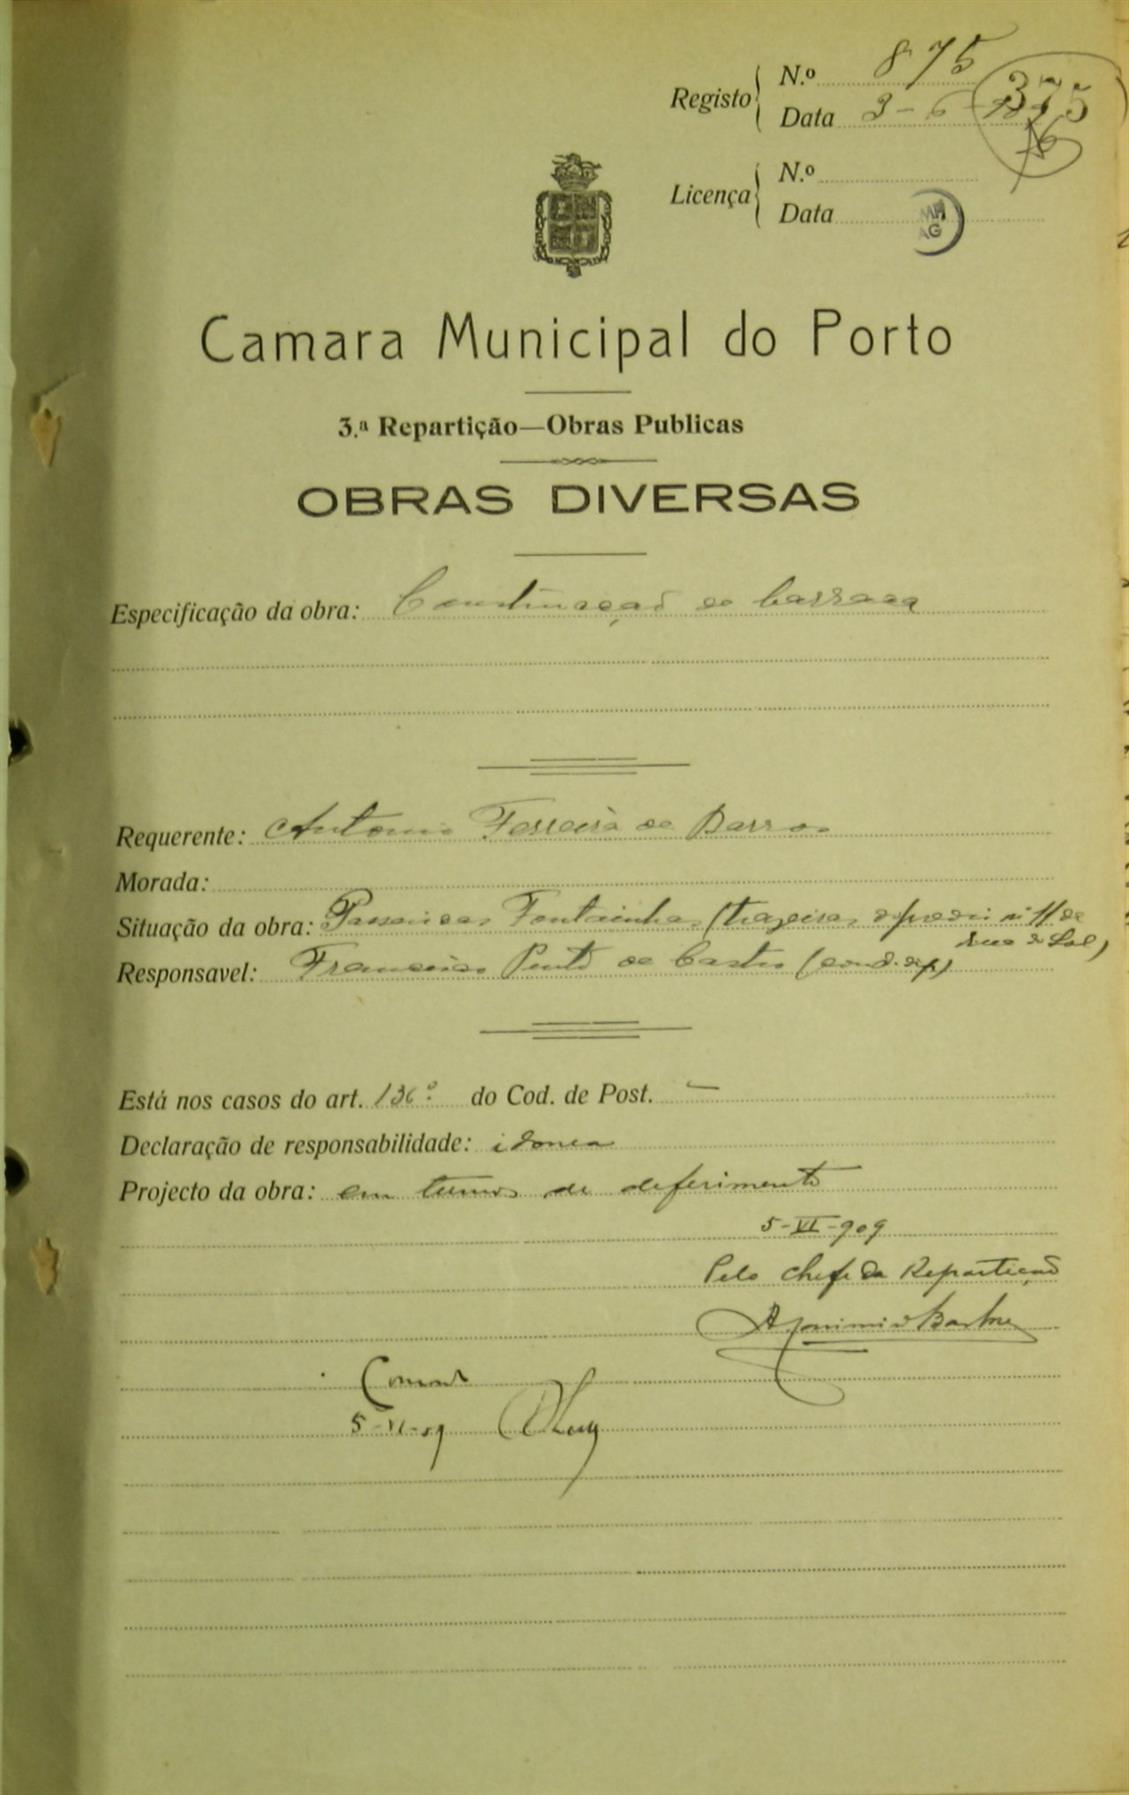 Registo N.º 875
Data 3-6-
375
Licença N.º
Data
MH
AG
Camara Municipal do Porto
3.ª Repartição—Obras Publicas
OBRAS DIVERSAS
Especificação da obra: de barraca
Requerente: Antonio Ferreira de Barros
Morada:
Situação da obra: Passeio das Fontainhas (trazeiras do predio nº 11 da
rua do Sol)
Responsavel: Francisco Pinto de Castro (cond. o.p.)
Está nos casos do art. 136º do Cod. de Post. —
Declaração de responsabilidade: idonea
Projecto da obra: em termos de deferimento
5-VI-909
Pelo Chefe da Repartição
5-VI-09